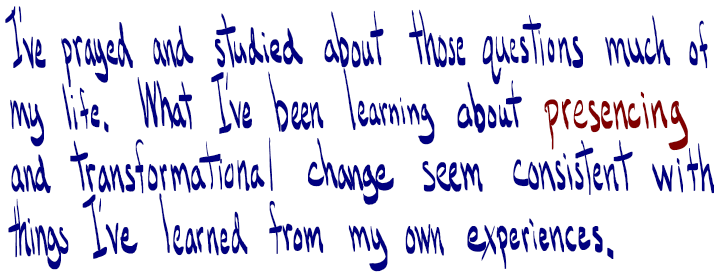 I've prayed and studied about those questions much of
my life. What I've been learning about presencing
and transformational change seem consistent with
things I've learned from my own experiences.